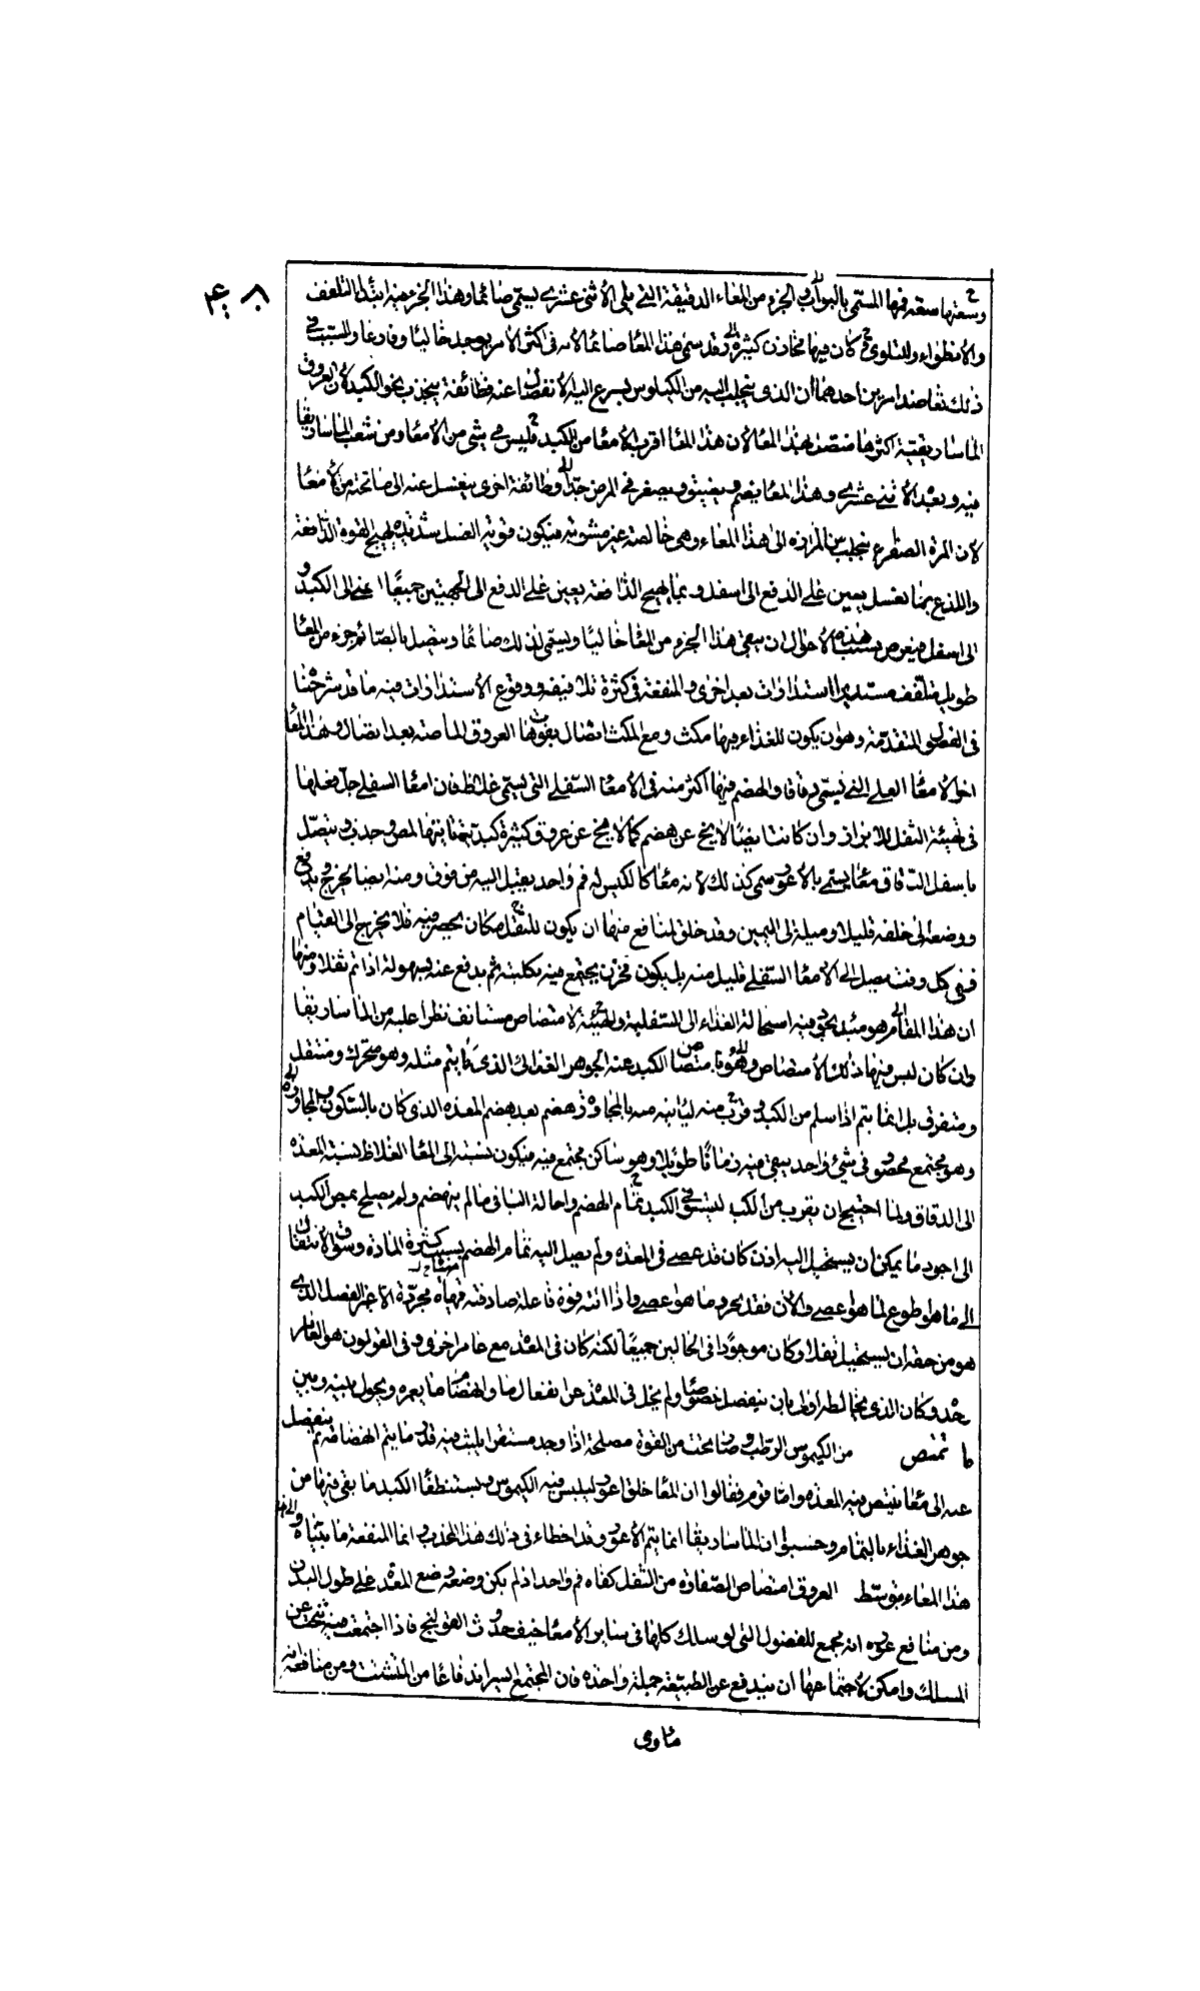 وسعتها سعة فمها المسمى بالبواب والجزء من المعاء الدقيقة التي تلي الاثنى عشرى يسمى صائما وهذا الجزء فيه ابتداء التلفف
والانطواء والتلوى كان فيها مخازن كثيرة وقد سمى هذا المعا صائما لانه فى اكثر الامر يوجد خاليا وفارغا والسبب فى
ذلك تعاضد امرين احدهما ان الذى ينجلب اليه من الكيلوس يسرع اليه الانفصال عنه فطائفة ينجذب نحو الكبد لان العروق
الماساريقية اكثرها متصلة بهذا المعا لان هذا المعا اقرب الامعا من الكبد وليس فى شى من الامعا من شعب الماساريقا
فيه وبعده الاثنى عشرى وهذا المعا يضمر ويضيق ويصغر فى المرض جدا وطائفة اخرى ينغسل عنه الى ما تحته من الامعا
لان المرة الصفرا ينجلب من المرارة الى هذا المعاء وهى خالصة غير مشوبة فيكون قوية الغسل شديدة تهييج القوة الدافعة
واللذع بما يغسل يعين على الدفع الى اسفل وبما يهيج الدافعة يعين على الدفع الى الجهتين جميعا اعنى الى الكبد و
الى اسفل فيعرض بسبب هذه الاحوال ان يبقى هذا الجزء من المعا خاليا ويسمى لذلك صائما ويتصل بالصائم جزء من المعا
طويل متلفف مستدير استدارات بعد اخرى والمنفعة فى كثرة تلافيفه ووقوع الاستدارات فيه ما قد شرحنا
فى الفصول المتقدمة وهو ان يكون للغذاء فيها مكث ومع المكث اتصال بفوهات العروق الماصة بعد اتصال وهذا المعا
اخر الامعا العليا التى تسمى دقاقا والهضم فيها اكثر منه فى الامعا السفلى التى تسمى غلاظا فان امعا السفلى جل فعلها
فى تهيئة الثفل للابراز وان كانت ايضا لا يخ عن هضم كما لا يخ عن عروق كثيرة كبدية تتاتيها لمص وجذب ويتصل
باسفل الدقاق معا يسمى بالاعور سمى كذلك لانه معا كالكيس له فم واحد يقبل اليه من فوق ومنه ايضا يخرج ويدفع
ووضعه الى خلفه قليلا وميله الى اليمين وقد خلق لمنافع منها ان يكون للثفل مكان يحصره فيه فلا يخرج الى القيام
فى كل وقت يصل الى الامعا السفلى قليل منه بل يكون مخزن يجتمع فيه بكليته ثم يدفع عنه بسهولة اذا تم ثفلا ومنها
ان هذا المعا هو مبدء فيه استحالة الغذاء الى الثفلية والتهيئة لامتصاص مستانف نظرا عليه من الماساريقا
وان كان ليس فيها ذلك الامتصاص امتصاص الكبد عنه الجوهر الغذائى الذى يتم مثله وهو متحرك ومنتقل
ومتفرق بل انما يتم اذا سلم من الكبد وقرب منه لياتيه منه بالمجاورة هضم بعد هضم المعدة الذى كان بالسكون والمجاورة
وهو مجتمع محصور فى شئ واحد يبقى فيه زمانا طويلا وهو ساكن مجتمع فيه فيكون نسبته الى المعا الغلاظ نسبة المعدة
الى الدقاق ولما احتيج ان يقرب من الكبد ليستوفى الكبد تمام الهضم واحالة الباقى مما لم ينهضم ولم يصلح لمص الكبد
الى اجود ما يمكن ان يستحيل اليه اذن كان قد عصى فى المعدة ولم يصل اليه تمام الهضم بسبب كثرة المادة وسبق الانفعال
الى ما هو اطوع لما هو اعصى والان فقد تجرد ما هو اعصى واذا اتته قوة فاعلة صادفته مهيأة مجردة الا عن الفضل الذى
هو من حقه ان يستحيل ثفلا وكان موجودا فى الحالين جميعا لكنه كان فى المعدة مع غامر اخر وفى القولون هو الغامر
وحده وكان الذى يخالطه اولى بان ينفصل خصوصا ولم يخل فى المعدة عن انفعال ما وانهضام ما يعمره ويحول بينه وبين
ما تمتص من الكيموس الرطب وصار تحت من القوة مصلحة اذا وجد مستقرا يلبث فيه قدر ما يتم انهضامه ثم ينفصل
عنه الى معا يمتص فيه المعدة واما قوم فقالوا ان المعا خلق اعور ليلبس فيه الكيموس فيستنظف الكبد ما بقى فيها من
جوهر الغذاء بالتمام وحسبوا ان الماساريقا انما يتم الاعور وقد اخطاء فى ذلك هذا المحذوب انما المنفعة ما بيناه
هذا المعاء بتوسط العروق امتصاص الصفاوة من الثفل كفاه فم واحد اذ لم يكن وضعه وضع المعدة على طول البدن
ومن منافع عوره انه مجمع للفضول التى لو سلك كلها فى ساير الامعا خيف حدوث القولنج فاذا اجتمعت فيه تنحت عن
المسلك وامكن لاجتماعها ان يندفع عن الطبيعة جملة واحدة فان المجتمع ايسر اندفاعا من المتشتت ومن منافعه
ماوى